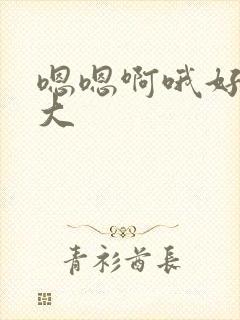 嗯嗯啊哦好
大
青衫酋長